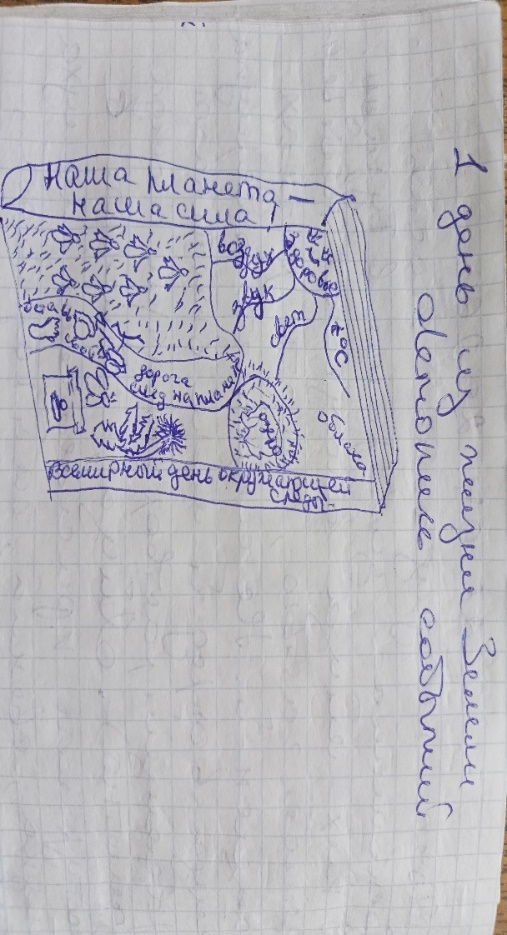 1 день из жизни Земли
летопись событий
Наша планета –
наша сила!
воздух
здоровье
звук
свет
лес
облака
дорога
след на планете
Всемирный день окружающей
среды